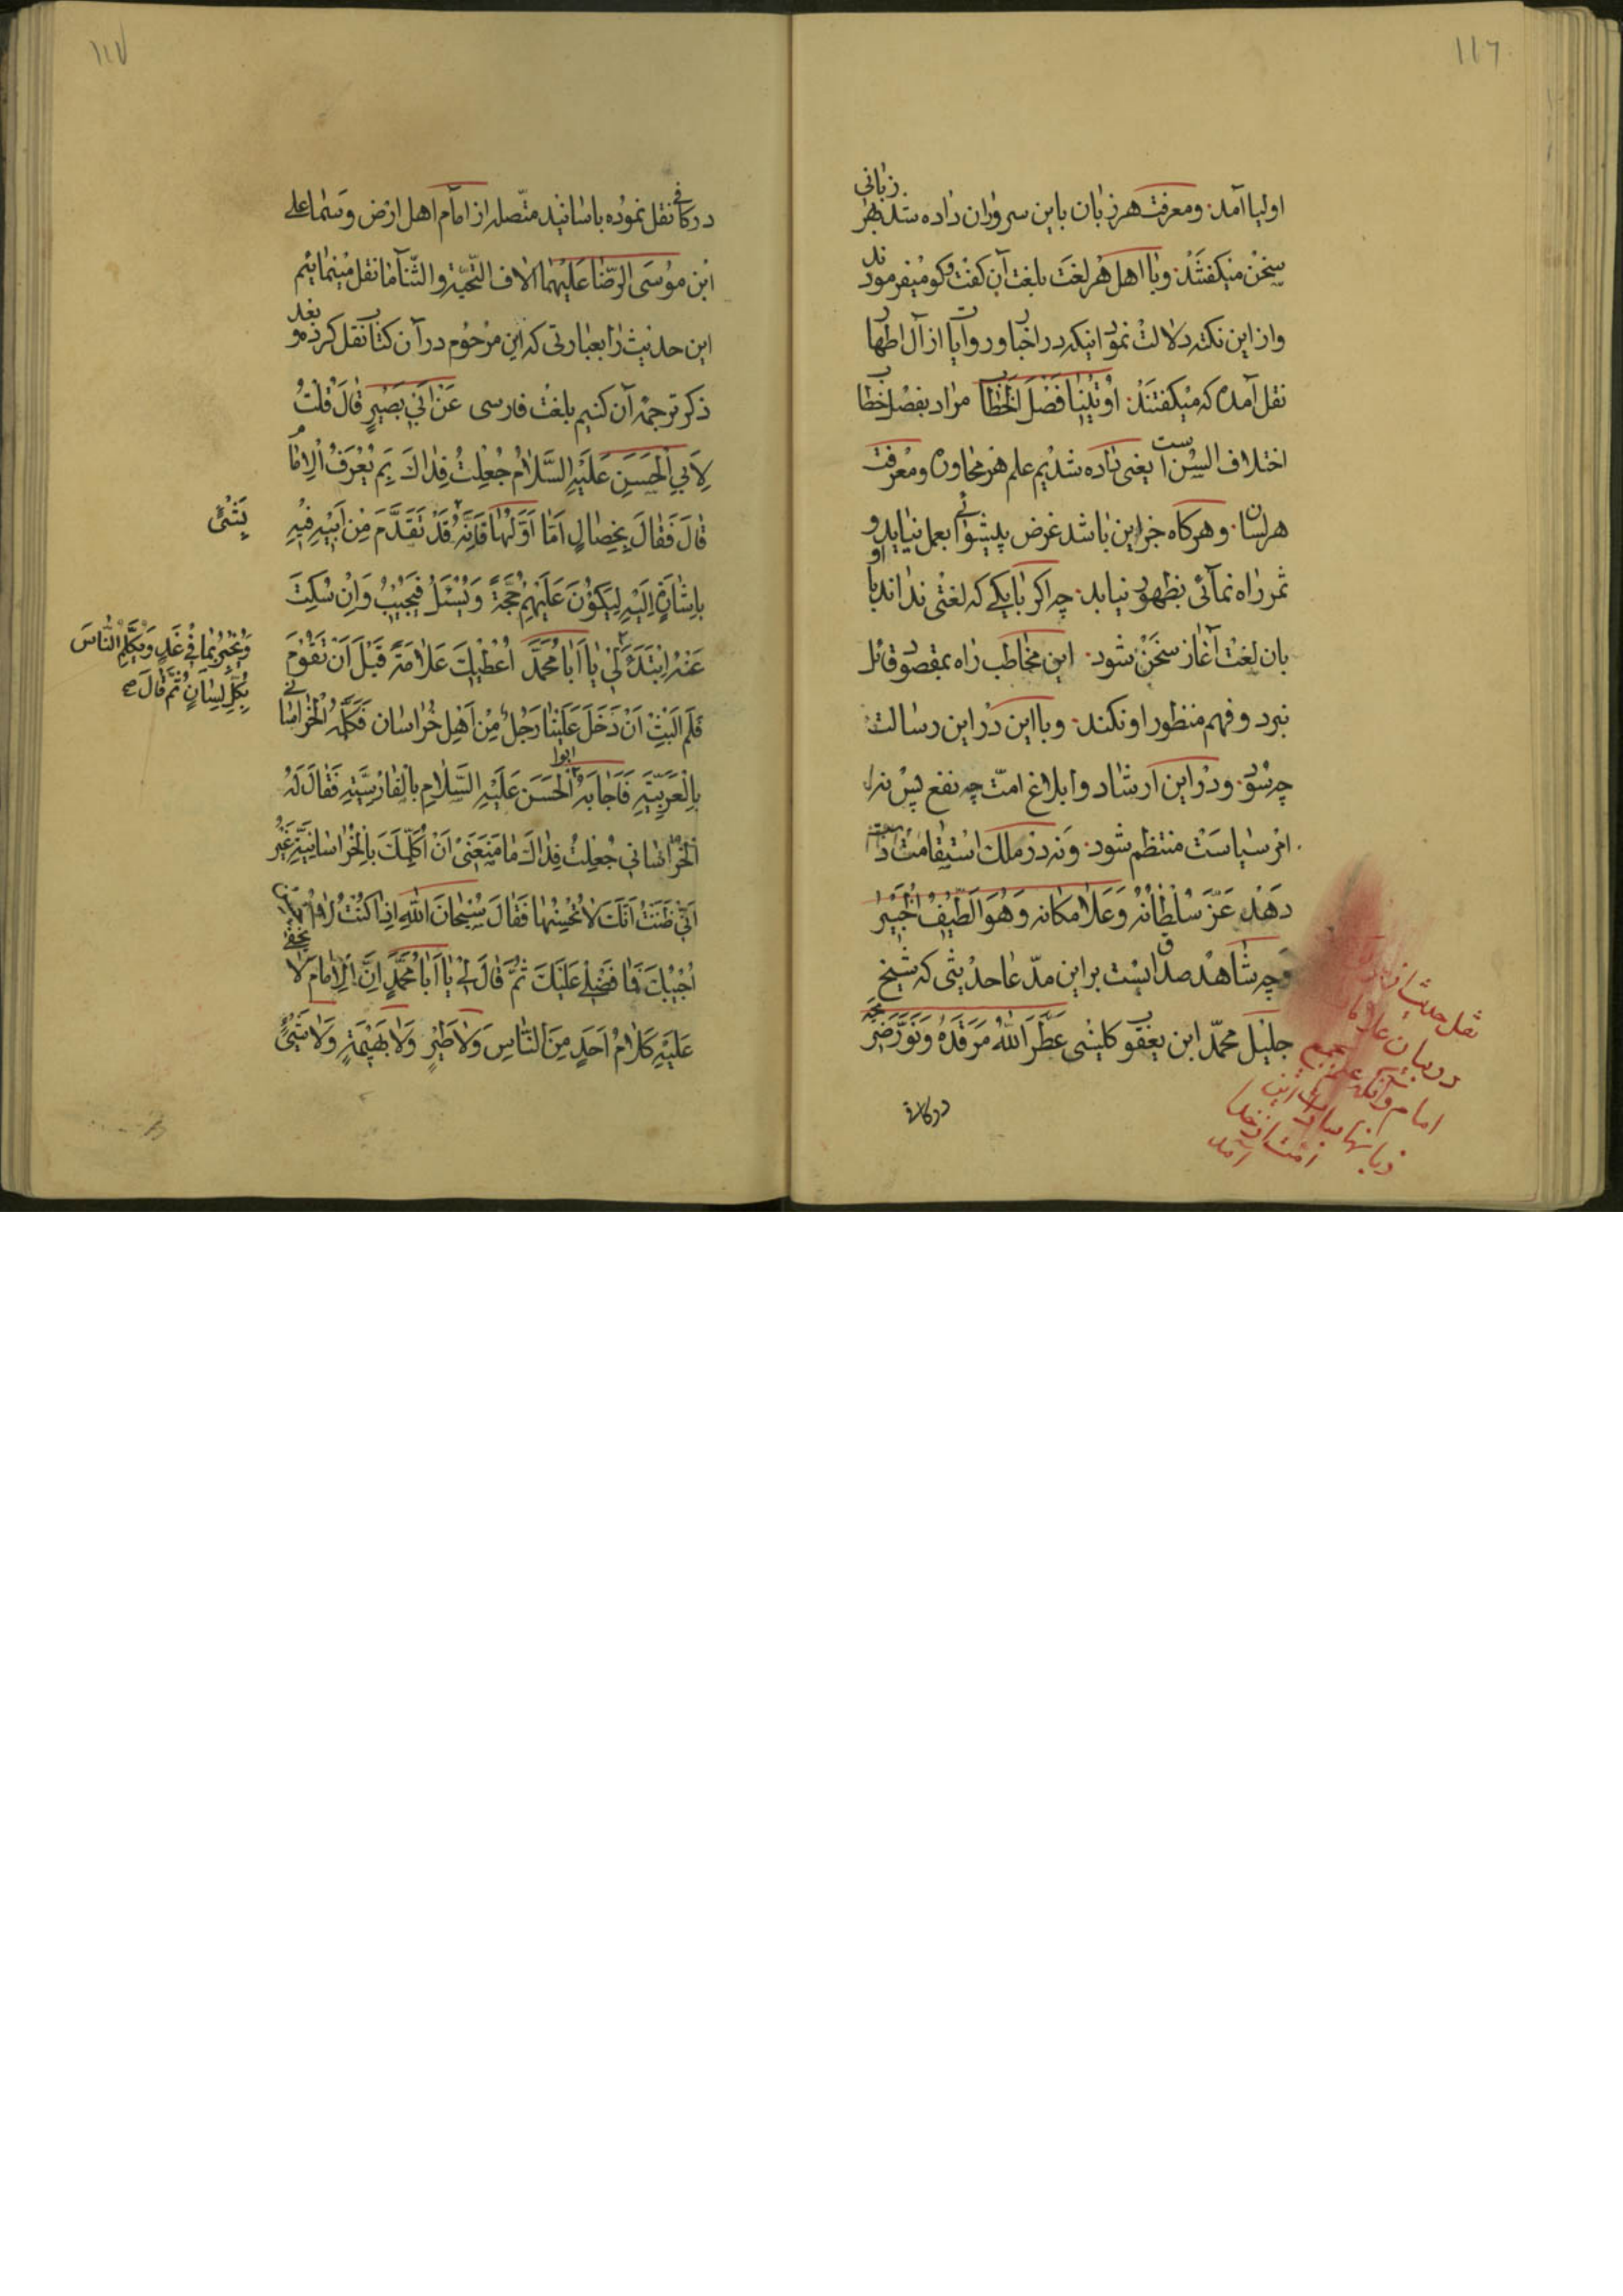 ١١٦
اولیا آمد. ومعرفت هر زبان باین سروران داده شد. بهر زبانی
سخن میکفتند. وبا اهل هر لغت بلغت آن کفت وکو میفرمودند
واز این نکته دلالت نمود انیکه در اخبار وروایات از آل اطهار
نقل آمده که میکفتند. اُوتینا فَصْلَ الخطاب مراد بفصل خطاب
اختلاف السن است یعنی داده شدیم علم هر محاوره ومعرفت
هر لسان. وهرکاه جز این باشد غرض پیشوائی بعمل نیاید و
ثمر راه نمائی بظهور نیابد. چه اکر با یکے که لغتی نداند یا او
بان لغت آغاز سخن شود. این مخاطب راه بمقصود قائل
نبرد وفهم منظور او نکند. وبا این در این رسالت
چه سود. ودر این ارشاد وابلاغ امت چه نفع پس نه
امر سیاست منتظم شود. ونه در ملک استقامت
دهد عَزَّ سُلْطانُهُ وَعَلا مکانه وَهُوَ الَّطیفُ الخَبیر
وچه شاهد صداقیست بر این مدّعا حدیثی که شیخ
جلیل محمّد ابن یعقوب کلینی عَطَّرَ اللهُ مَرقَدَهُ وَنَوَّرَ ضَریحَهُ
در کافی
نقل حدیث از
در بیان علامات
امام وآنکه علم جمیع
زبانها
از خدا
آمد
١١٧
در کافی نقل نموده باسانید متّصله از امام اهل ارض وسما علی
ابْن موُسَی الرّضا عَلَیْهِمَا الاف التّحیّة والثّنآ ما نقل مینمائیم
این حدیث را بعبارتی که این مرحُوم در آن کتاب نقل کرده وبعد
ذکر ترجمهٔ آن کنیم بلغت فارسی عَنْ اَبی بَصیرٍ قالَ قُلْتُ
لِاَبِي الْحَسَنِ عَلَیْهِ السَّلامُ جُعِلْتُ فِداكَ بِمَ یُعْرَفُ الْاِمامُ
قالَ فَقالَ بِخِصالٍ اَمّا اَوَّلُها فَاِنَّهُ قَدْ تَقَدَّمَ مِنْ اَبیْهِ فیْهِ
بِشَیْئٍ
بِاِشارَةٍ اِلَیْهِ لِیَکُوْنَ عَلَیْهِمْ حُجَّةً وَیُسْئَلُ فَیُجیْبُ وَاِنْ سُکِتَ
عَنْهُ اِبْتَدَءَ لی یا اَبا مُحَمَّدٍ اُعْطیْكَ عَلامَةً قَبْلَ اَنْ تَقُوْمَ
وَیُخْبِرُ بِما فِي غَدٍ وَیُکَلِّمُ النّاسَ
بِکُلِّ لِسانٍ ثُمَّ قالَ صح
فَلَمْ اَلْبَثْ اَنْ دَخَلَ عَلَیْنا رَجُلٌ مِنْ اَهْلِ خُراسان فَکَلَّمَهُ الْخُراسانی
بِالْعَرَبِیَّةِ فَاَجابَهُ ابوا الْحَسَنِ عَلَیْهِ السَّلامِ بِالْفارْسِیَّةِ فَقالَ لَهُ
اَلْخُراسانی جُعِلْتُ فِداكَ ما مَنَعَنی اَنْ اُکَلِّمَكَ بِالْخُراسانِیَّةِ غَیْرُ
اَنّی ظَنَنْتُ اَنَّكَ لا تُحْسِنُها فَقالَ سُبْحانَ اللهِ اِذا کُنْتُ لا اُحْسِنُ
اُجیْبُكَ فَما فَضْلی عَلَیْكَ ثُمَّ قالَ لی یا اَبا مُحَمَّدٍ اِنَّ الْاِمامَ لا یَخْفی
عَلَیْهِ کَلامُ اَحَدٍ مِنَ النّاسِ وَلا طَیْرٍ وَلا بَهیْمَةٍ وَلا شَیْئٍ